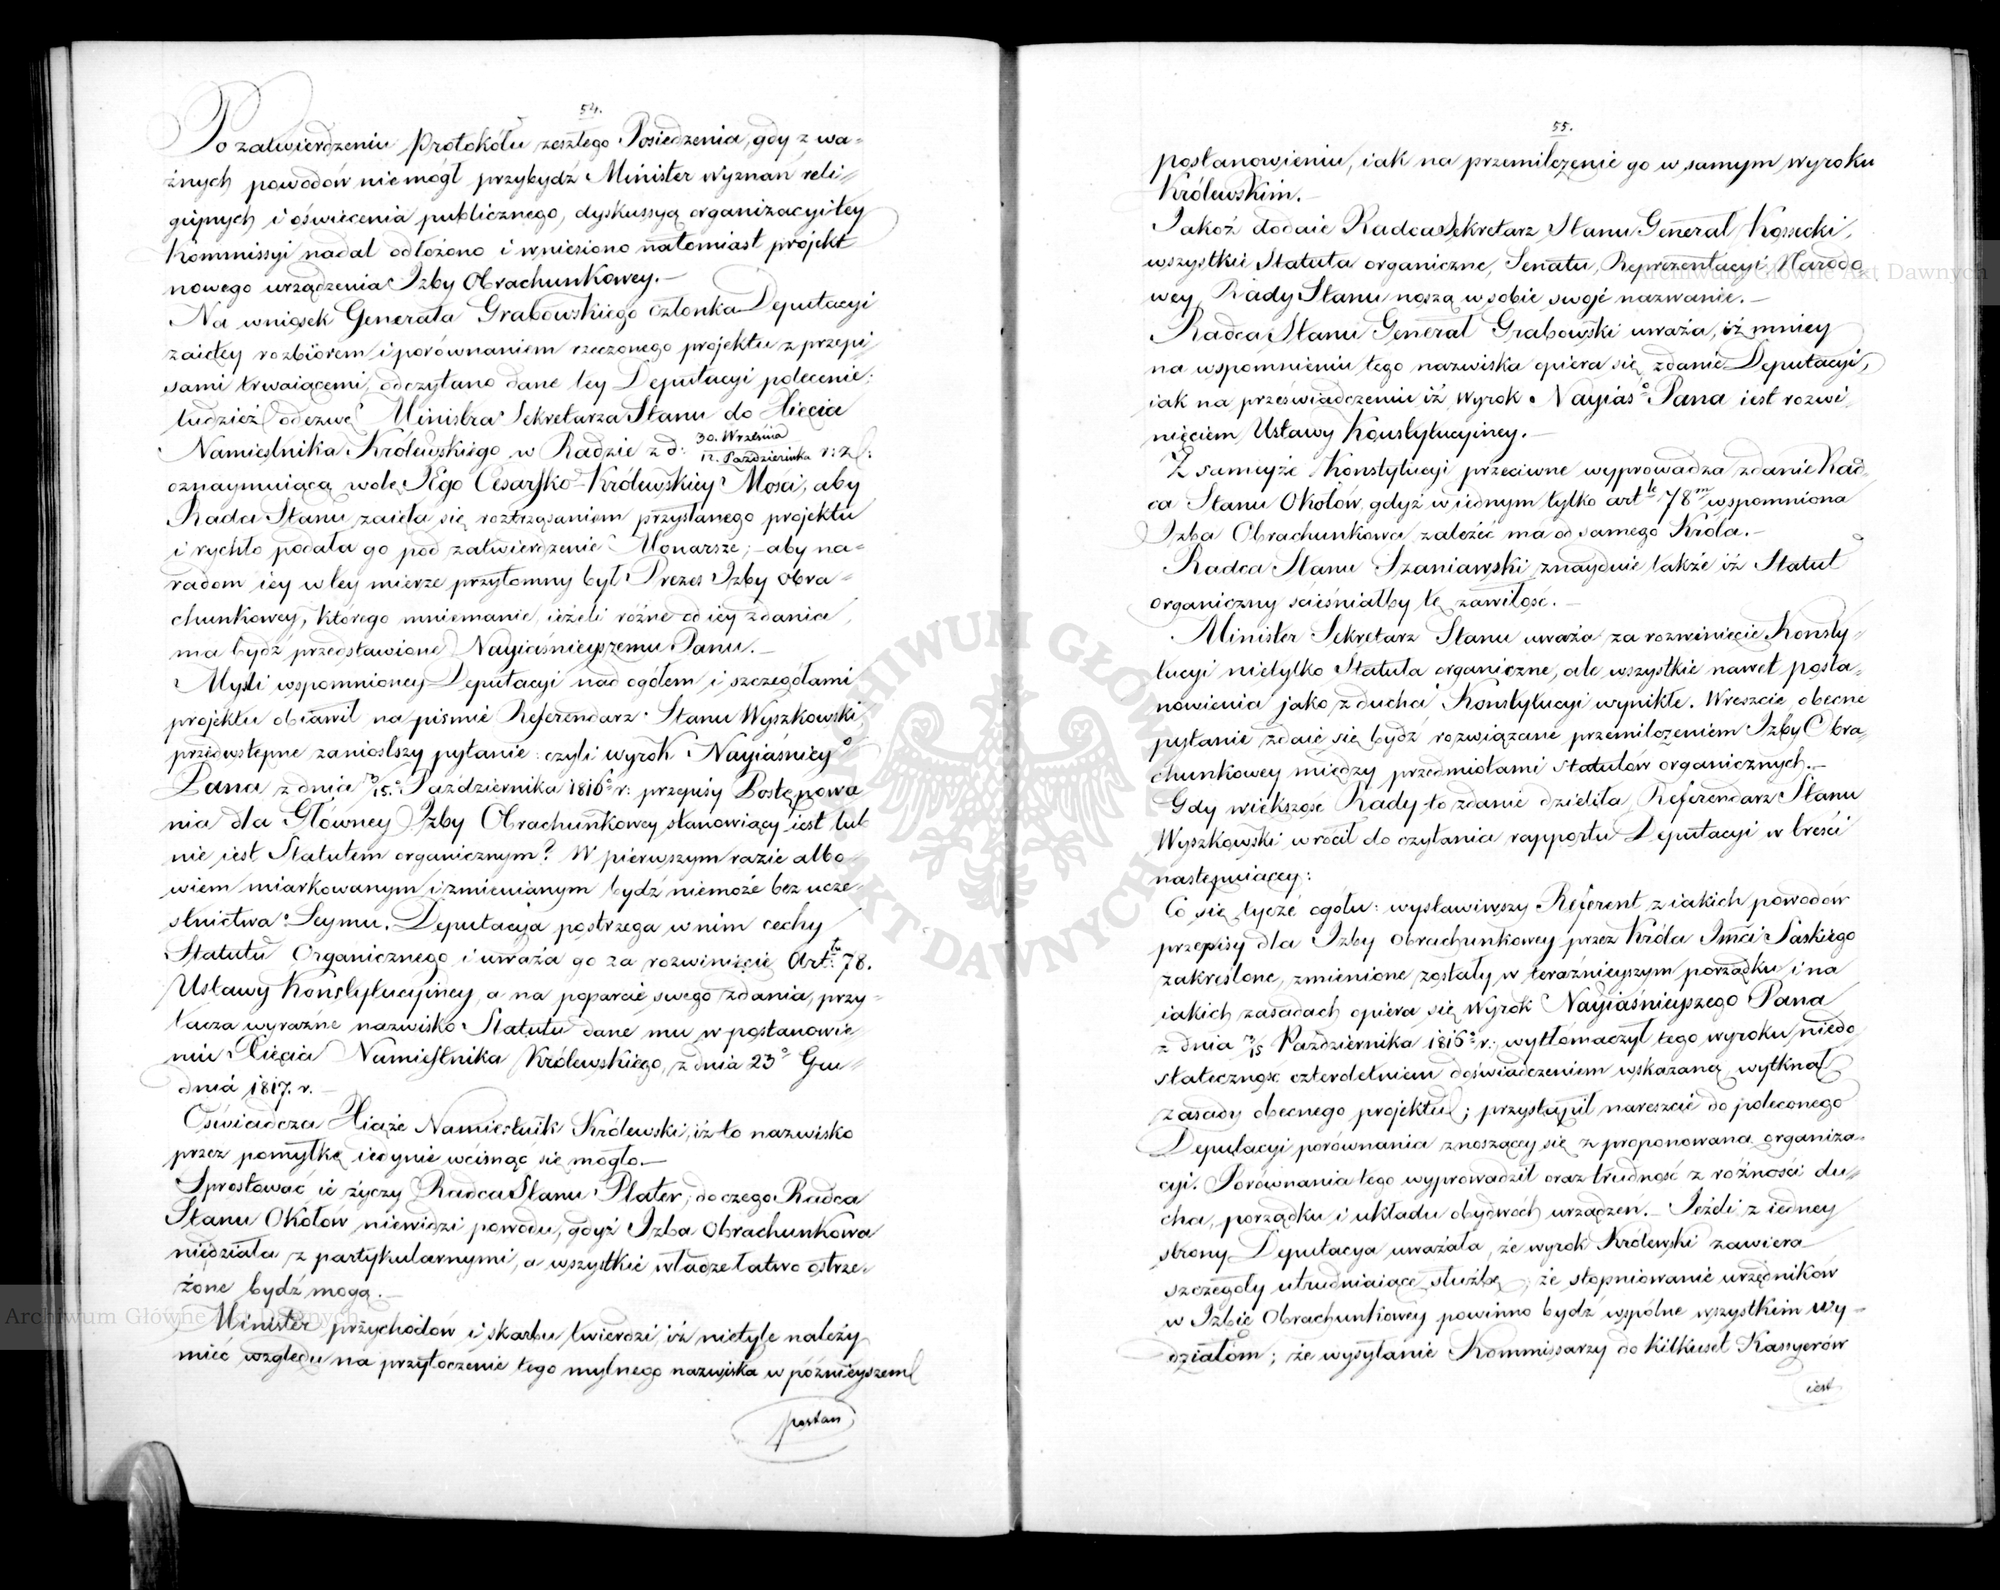 54.
Po zatwierdzeniu Protokółu zeszłego Posiedzenia, gdy z wa-
żnych powodów niemógł przybydź Minister wyznań reli-
giynych i oświecenia publicznego, dyskussyą organizacyi tey
Kommissyi nadal odłożono i wniesiono natomiast projekt
nowego urządzenia Izby Obrachunkowey.—
Na wniosek Generała Grabowskiego członka Deputacyi
zaiętey rozbiorem i porównaniem rzeczonego projektu z przepi-
sami trwaiącemi, odczytano dane tey Deputacyi polecenie;
tudzież odezwę Ministra Sekretarza Stanu do Xięcia
Namiestnika Królewskiego w Radzie z d: 30. Września / 12. Października r: z:
oznaymuiącą wolę Jego Cesarsko-Królewskiey Mości, aby
Rada Stanu zaięła się roztrząsaniem przysłanego projektu
i rychło podała go pod zatwierdzenie Monarsze; - aby na-
radom iey w tey mierze przytomny był Prezes Izby Obra-
chunkowey, którego mniemanie, ieżeli różne od iey zdania,
ma bydź przedstawione Nayiaśnieyszemu Panu.—
Myśli wspomnioney Deputacyi nad ogółem i szczegółami
projektu obiawił na piśmie Referendarz Stanu Wyszkowski,
przedwstępne zaniósłszy pytanie: czyli wyrok Nayiaśniey°
Pana z dnia 3/15.° Października 1816° r: przepisy Postępowa
nia dla Główney Izby Obrachunkowey stanowiący iest lub
nie iest Statutem organicznym? W pierwszym razie albo-
wiem miarkowanym i zmienianym bydź niemoże bez ucze-
stnictwa Seymu. Deputacya postrzega w nim cechy
Statutu Organicznego i uważa go za rozwinięcie Art:tu 78.
Ustawy Konstytucyiney, a na poparcie swego zdania, przy-
tacza wyraźne nazwisko Statutu dane mu w postanowie-
niu Xięcia Namiestnika Królewskiego, z dnia 23° Gru-
dnia 1817. r.—
Oświadcza Xiąże Namiestnik Królewski, iż to nazwisko
przez pomyłkę iedynie wcisnąć się mogło.—
Sprostować ie życzy Radca Stanu Plater, do czego Radca
Stanu Okołów niewidzi powodu, gdyż Izba Obrachunkowa
niedziała z partykularnymi, a wszystkie władze łatwo ostrze-
żone bydź mogą.—
Minister przychodów i skarbu twierdzi iż nietyle należy
mieć względu na przytoczenie tego mylnego nazwiska w późnieyszem
postan
55.
postanowieniu, iak na przemilczenie go w samym wyroku
Królewskim.—
Jakoż dodaie Radca Sekretarz Stanu Generał Kossecki,
wszystkie Statuta organiczne, Senatu, Reprezentacyi Narodo
wey, Rady Stanu noszą w sobie swoje nazwanie.—
Radca Stanu Generał Grabowski uważa, iż mniey
na wspomnieniu tego nazwiska opiera się zdanie Deputacyi,
iak na przeświadczeniu iż Wyrok Nayiaś° Pana iest rozwi-
nięciem Ustawy Konstytucyiney.—
Z sameyże Konstytucyi przeciwne wyprowadza zdanie Rad-
ca Stanu Okołów, gdyż w iednym tylko artle 78m wspomniona
Izba Obrachunkowa, zależeć ma od samego Króla.—
Radca Stanu Szaniawski znayduie także iż Statut
organiczny scieśniałby tę zawiłość.—
Minister Sekretarz Stanu uważa za rozwinięcie Konsty-
tucyi nietylko Statuta organiczne, ale wszystkie nawet posta-
nowienia jako z ducha Konstytucyi wynikłe. Wreszcie obecne
pytanie zdaie się bydź rozwiązane przemilczeniem Izby Obra-
chunkowey między przedmiotami Statutów organicznych.—
Gdy większość Rady to zdanie dzieliła, Referendarz Stanu
Wyszkowski wrócił do czytania rapportu Deputacyi w treści
następuiącey:
Co się tycze ogółu: wystawiwszy Referent z iakich powodów
przepisy dla Izby Obrachunkowey przez Króla Jmci Saskiego
zakreślone, zmienione zostały w teraźnieyszym porządku i na
iakich zasadach opiera się Wyrok Nayiaśnieyszego Pana
z dnia 3/15 Października 1816° r: wytłomaczył tego wyroku niedo
stateczność czteroletniem doświadczeniem wskazaną, wytknął
zasady obecnego projektu; przystąpił nareszcie do poleconego
Deputacyi porównania znoszącey się z proponowaną organiza-
cyi. Porównania tego wyprowadził oraz trudność z różności du-
cha, porządku i układu obydwóch urządzeń.— Jeżeli z iedney
strony Deputacya uważała, że wyrok Królewski zawiera
szczegóły utrudniaiące służbę; że stopniowanie urzędników
w Izbie Obrachunkowey powinno bydź wspólne wszystkim Wy-
działom; że wysyłanie Kommissarzy do kilkuset Kassyerów
iest
Archiwum Główne Akt Dawnych
Archiwum Główne Akt Dawnych
ARCHIWUM GŁÓWNE AKT DAWNYCH